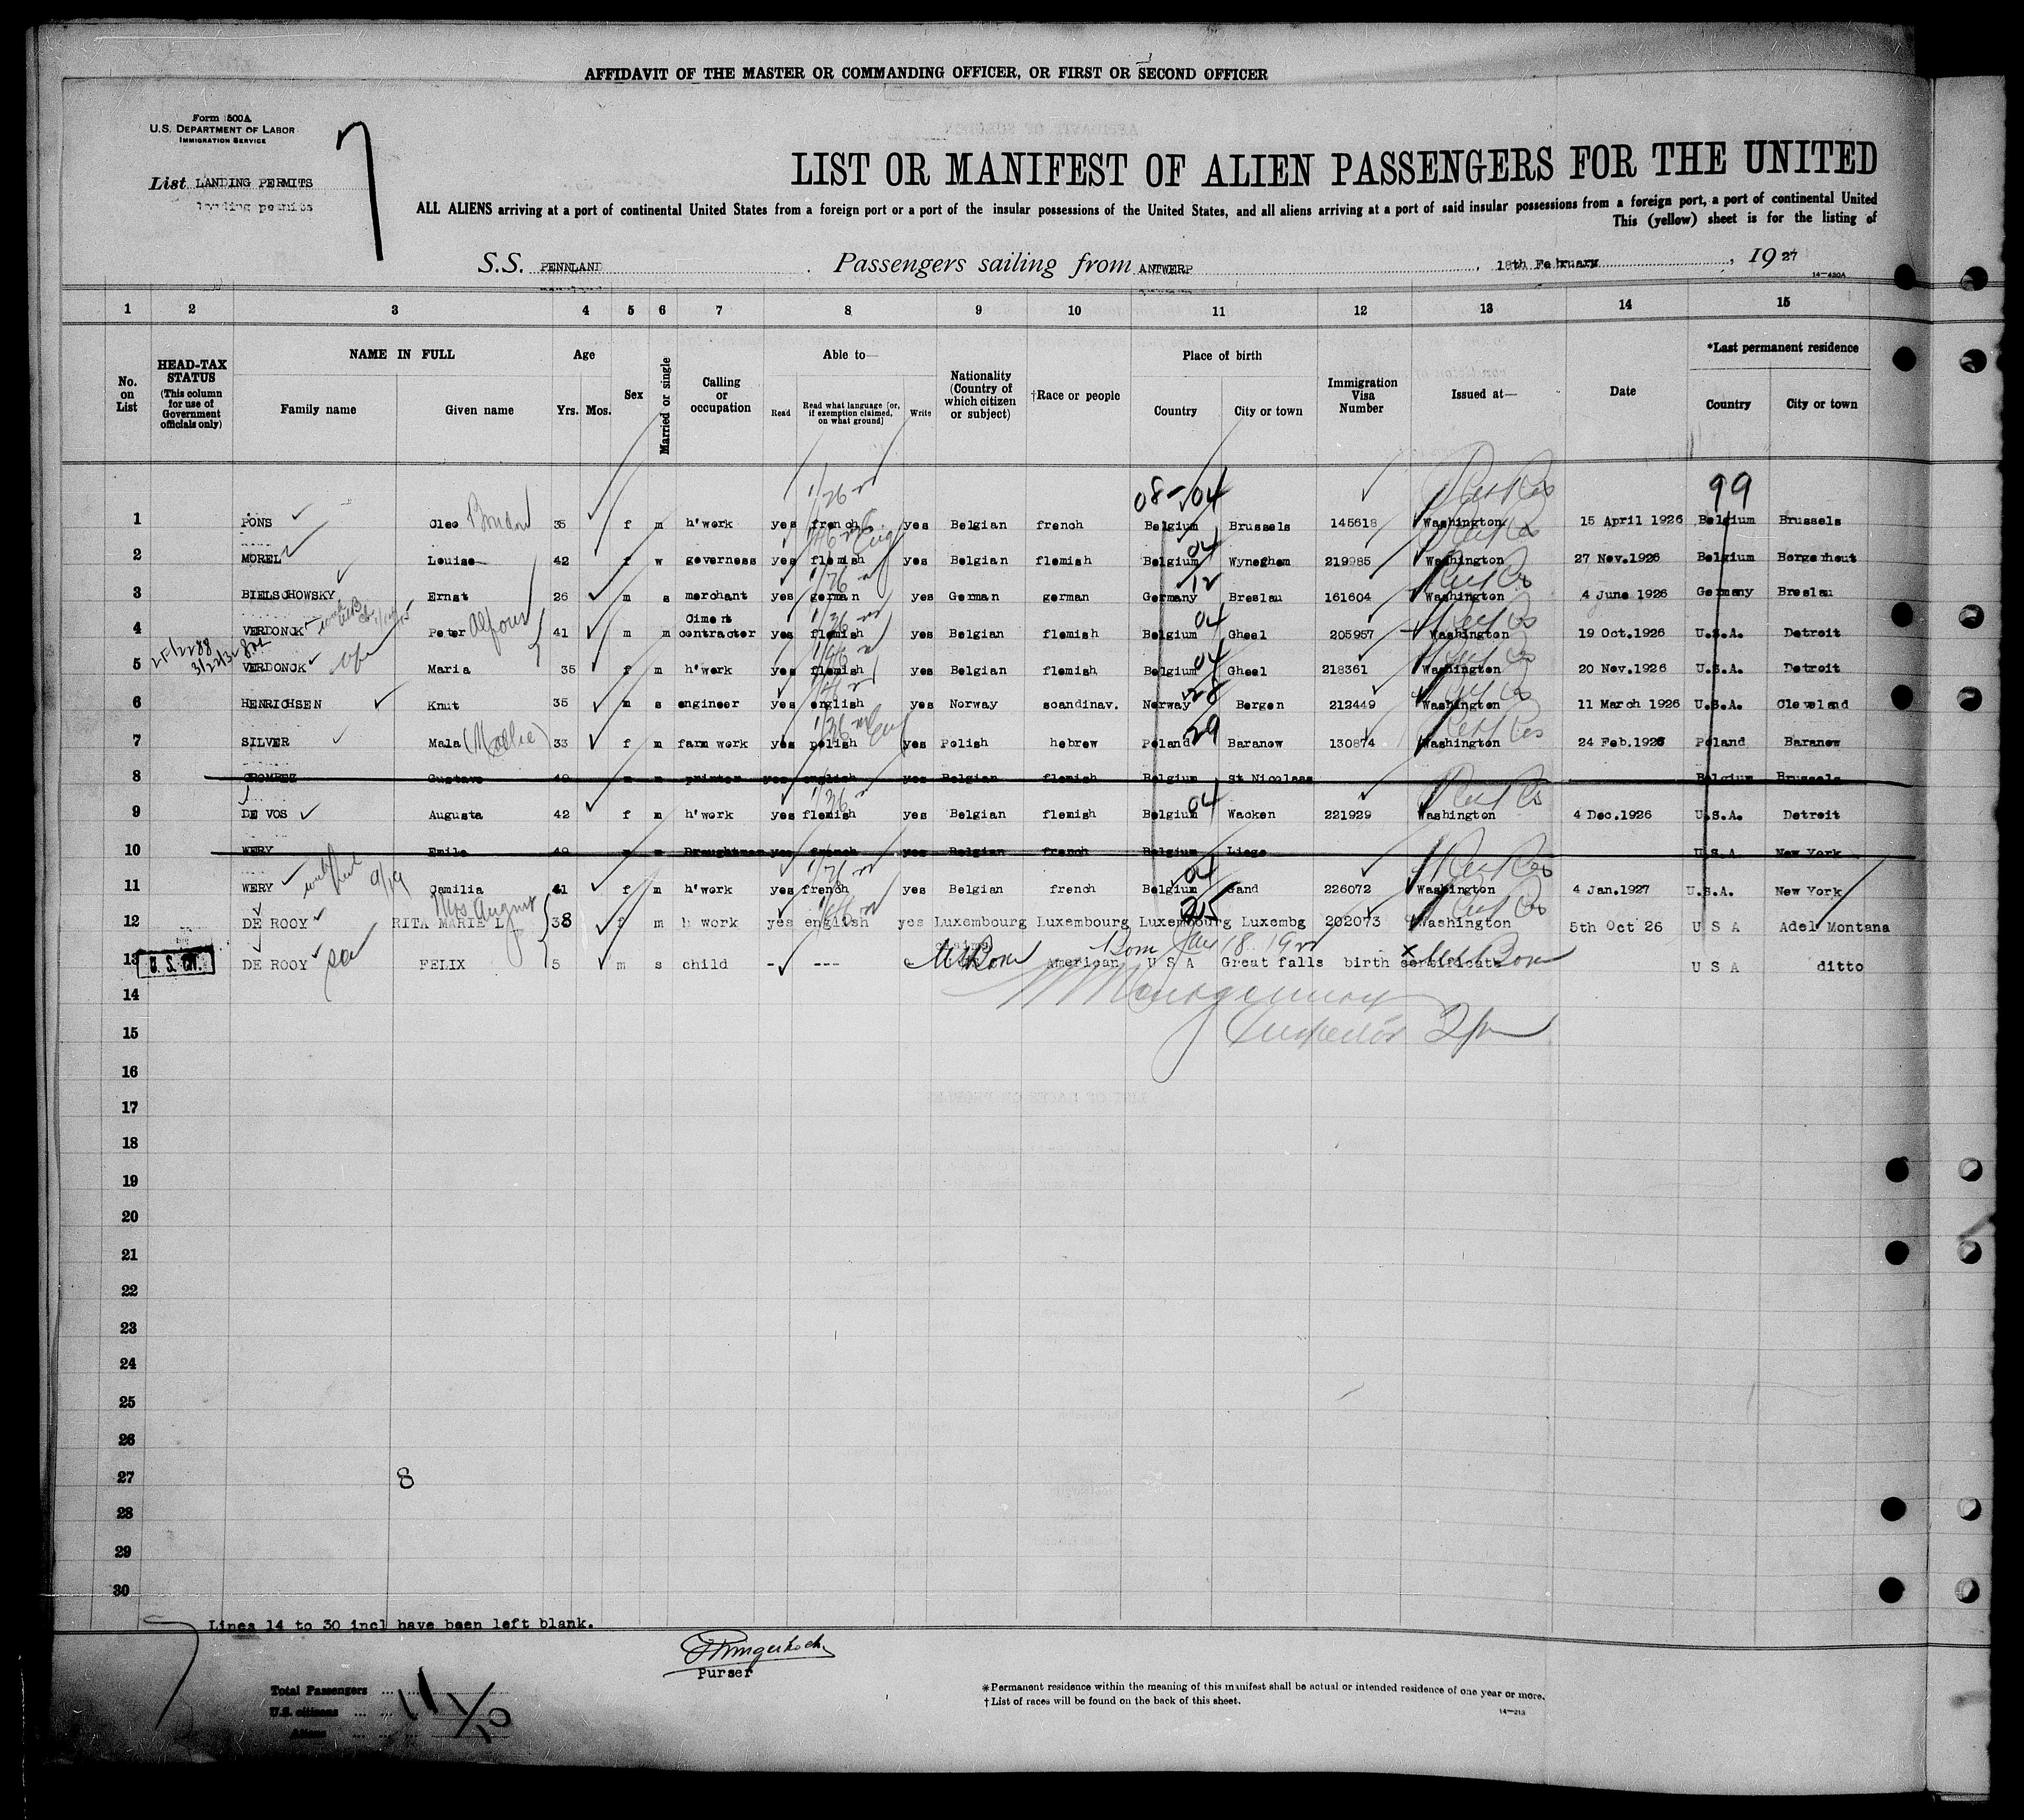 AFFIDAVIT OF THE MASTER OR COMMANDING OFFICER, OR FIRST OR SECOND OFFICER
Form 500A
U.S. DEPARTMENT OF LABOR
IMMIGRATION SERVICE
List LANDING PERMITS
7
LIST OR MANIFEST OF ALIEN PASSENGERS FOR THE UNITED
ALL ALIENS arriving at a port of continental United States from a foreign port or a port of the insular possessions of the United States, and all aliens arriving at a port of said insular possessions from a foreign port, a port of continental United
This (yellow) sheet is for the listing of
S.S. PENNLAND Passengers sailing from ANTWERP, 18th February, 1927
14-430A
1 2 3 4 5 6 7 8 9 10 11 12 13 14 15
No. on List HEAD-TAX STATUS (This column for use of Government officials only) NAME IN FULL Family name Given name Age Yrs. Mos. Sex Married or single Calling or occupation Able to— Read Read what language [or, if exemption claimed, on what ground] Write Nationality (Country of which citizen or subject) †Race or people Place of birth Country City or town Immigration Visa Number Issued at— Date *Last permanent residence Country City or town
08- 04 99
1 PONS Cleo 35 f m h'work yes french yes Belgian french Belgium Brussels 145618 Washington 15 April 1926 Belgium Brussels
2 MOREL Louise 42 f w governess yes flemish Eng yes Belgian flemish Belgium 04 Wyneghem 219985 Washington 27 Nov.1926 Belgium Borgerhout
3 BIELSCHOWSKY Ernst 26 m s merchant yes german yes German german Germany 12 Breslau 161604 Washington 4 June 1926 Germany Breslau
4 VERDONCK Peter Alfons 41 m m Ciment contractor yes flemish yes Belgian flemish Belgium 04 Gheel 205957 Washington 19 Oct.1926 U.S.A. Detroit
5 VERDONCK Maria 35 f m h'work yes flemish yes Belgian flemish Belgium 04 Gheel 218361 Washington 20 Nov.1926 U.S.A. Detroit
6 HENRICHSEN Knut 35 m s engineer yes english yes Norway scandinav. Norway 28 Bergen 212449 Washington 11 March 1926 U.S.A. Cleveland
7 SILVER Mala (Mollie) 33 f m farm work yes polish yes Polish hebrew Poland 29 Baranow 130874 Washington 24 Feb.1926 Poland Baranow
8 CROMBEZ Gustave 49 m m printer yes english yes Belgian flemish Belgium St Nicolaas Belgium Brussels
9 DE VOS Augusta 42 f m h'work yes flemish yes Belgian flemish Belgium 04 Wacken 221929 Washington 4 Dec.1926 U.S.A. Detroit
10 WERY Emile 49 m m Draughtman yes french yes Belgian french Belgium Liege U.S.A New York
11 WERY Camilia 41 f m h'work yes french yes Belgian french Belgium 04 Gand 226072 Washington 4 Jan.1927 U.S.A. New York
12 DE ROOY RITA MARIE L Mrs August 38 f m h work yes english yes Luxembourg Luxembourg Luxembourg 25 Luxembg 202073 Washington 5th Oct 26 U S A Adel Montana
13 U. S. CIT. DE ROOY FELIX 5 m s child - --- American U S A Great falls birth certificate U S A ditto
14
15 Inspector
16
17
18
19
20
21
22
23
24
25
26
27 8
28
29
30
Lines 14 to 30 incl have been left blank.
Purser
Total Passengers ... 11
U.S. citizens ... ... 1
Aliens ... ... ... 10
*Permanent residence within the meaning of this manifest shall be actual or intended residence of one year or more.
†List of races will be found on the back of this sheet.
14-213